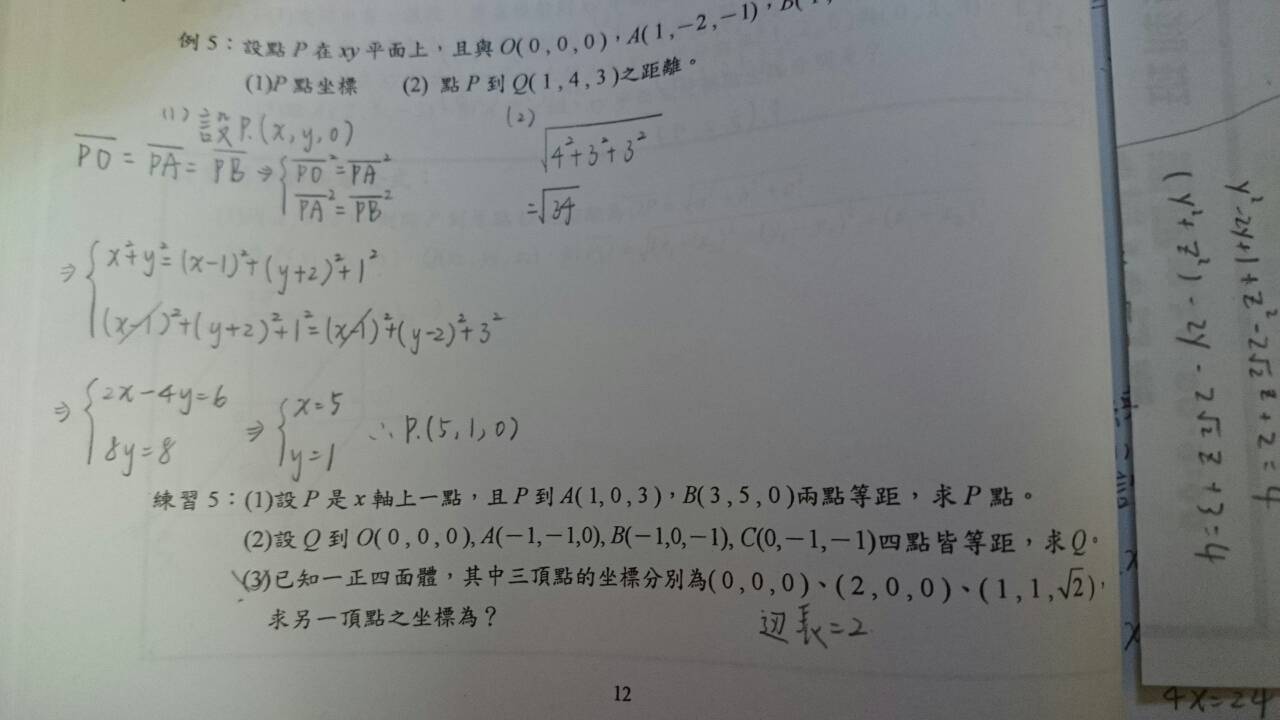 例 5：設點 P 在 xy 平面上，且與 O(0,0,0)，A(1,-2,-1)，B(1,
(1)P 點坐標 (2) 點 P 到 Q(1,4,3)之距離。
(1) 設P.(x,y,0)
(2) √(4²+3²+3²)
PO = PA = PB ⇒ { PO² = PA²
PA² = PB²
=√34
⇒ { x²+y²=(x-1)²+(y+2)²+1²
(x-1)²+(y+2)²+1²=(x-1)²+(y-2)²+3²
⇒ { 2x-4y=6
8y=8
⇒ { x=5
y=1
∴ P.(5,1,0)
練習 5：(1)設 P 是 x 軸上一點，且 P 到 A(1,0,3)，B(3,5,0)兩點等距，求 P 點。
(2)設 Q 到 O(0,0,0), A(-1,-1,0), B(-1,0,-1), C(0,-1,-1)四點皆等距，求 Q。
(3)已知一正四面體，其中三頂點的坐標分別為(0,0,0)、(2,0,0)、(1,1,√2)，
求另一頂點之坐標為？
边長=2
12
y²-2y+1+z²-2√2z+2=4
(y²+z²)-2y-2√2z+3=4
4x=24